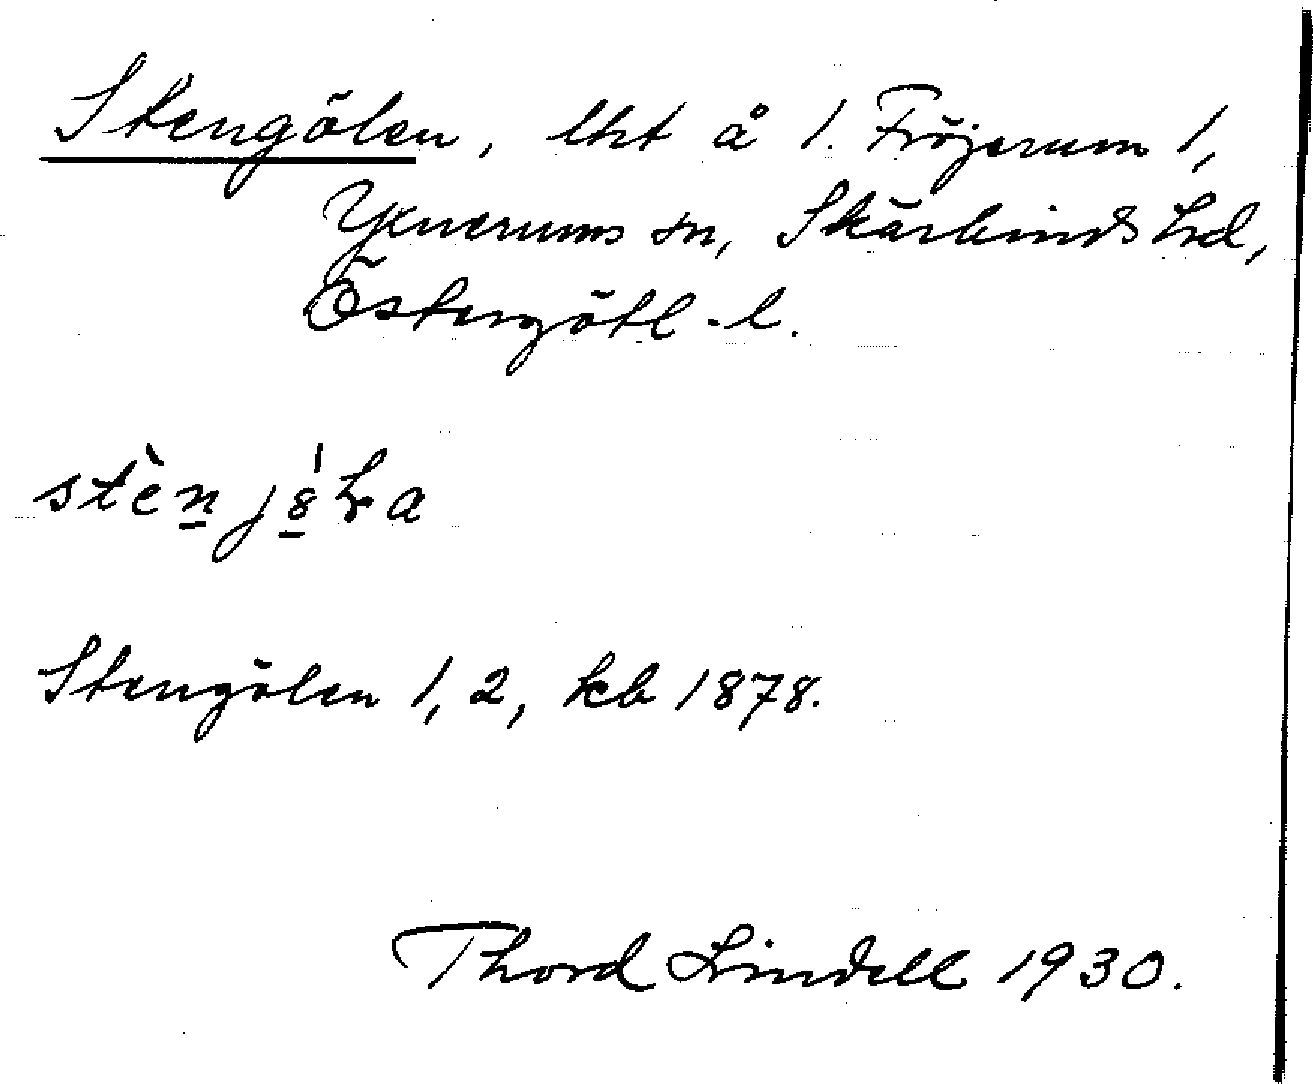 Stengölen, lht å 1. Fröjerum 1,
Yxnerums sn, Skärkinds hd,
Östergötl. l.
stèn j
Stengölen 1, 2, kb 1878.
Thord Lindell 1930.